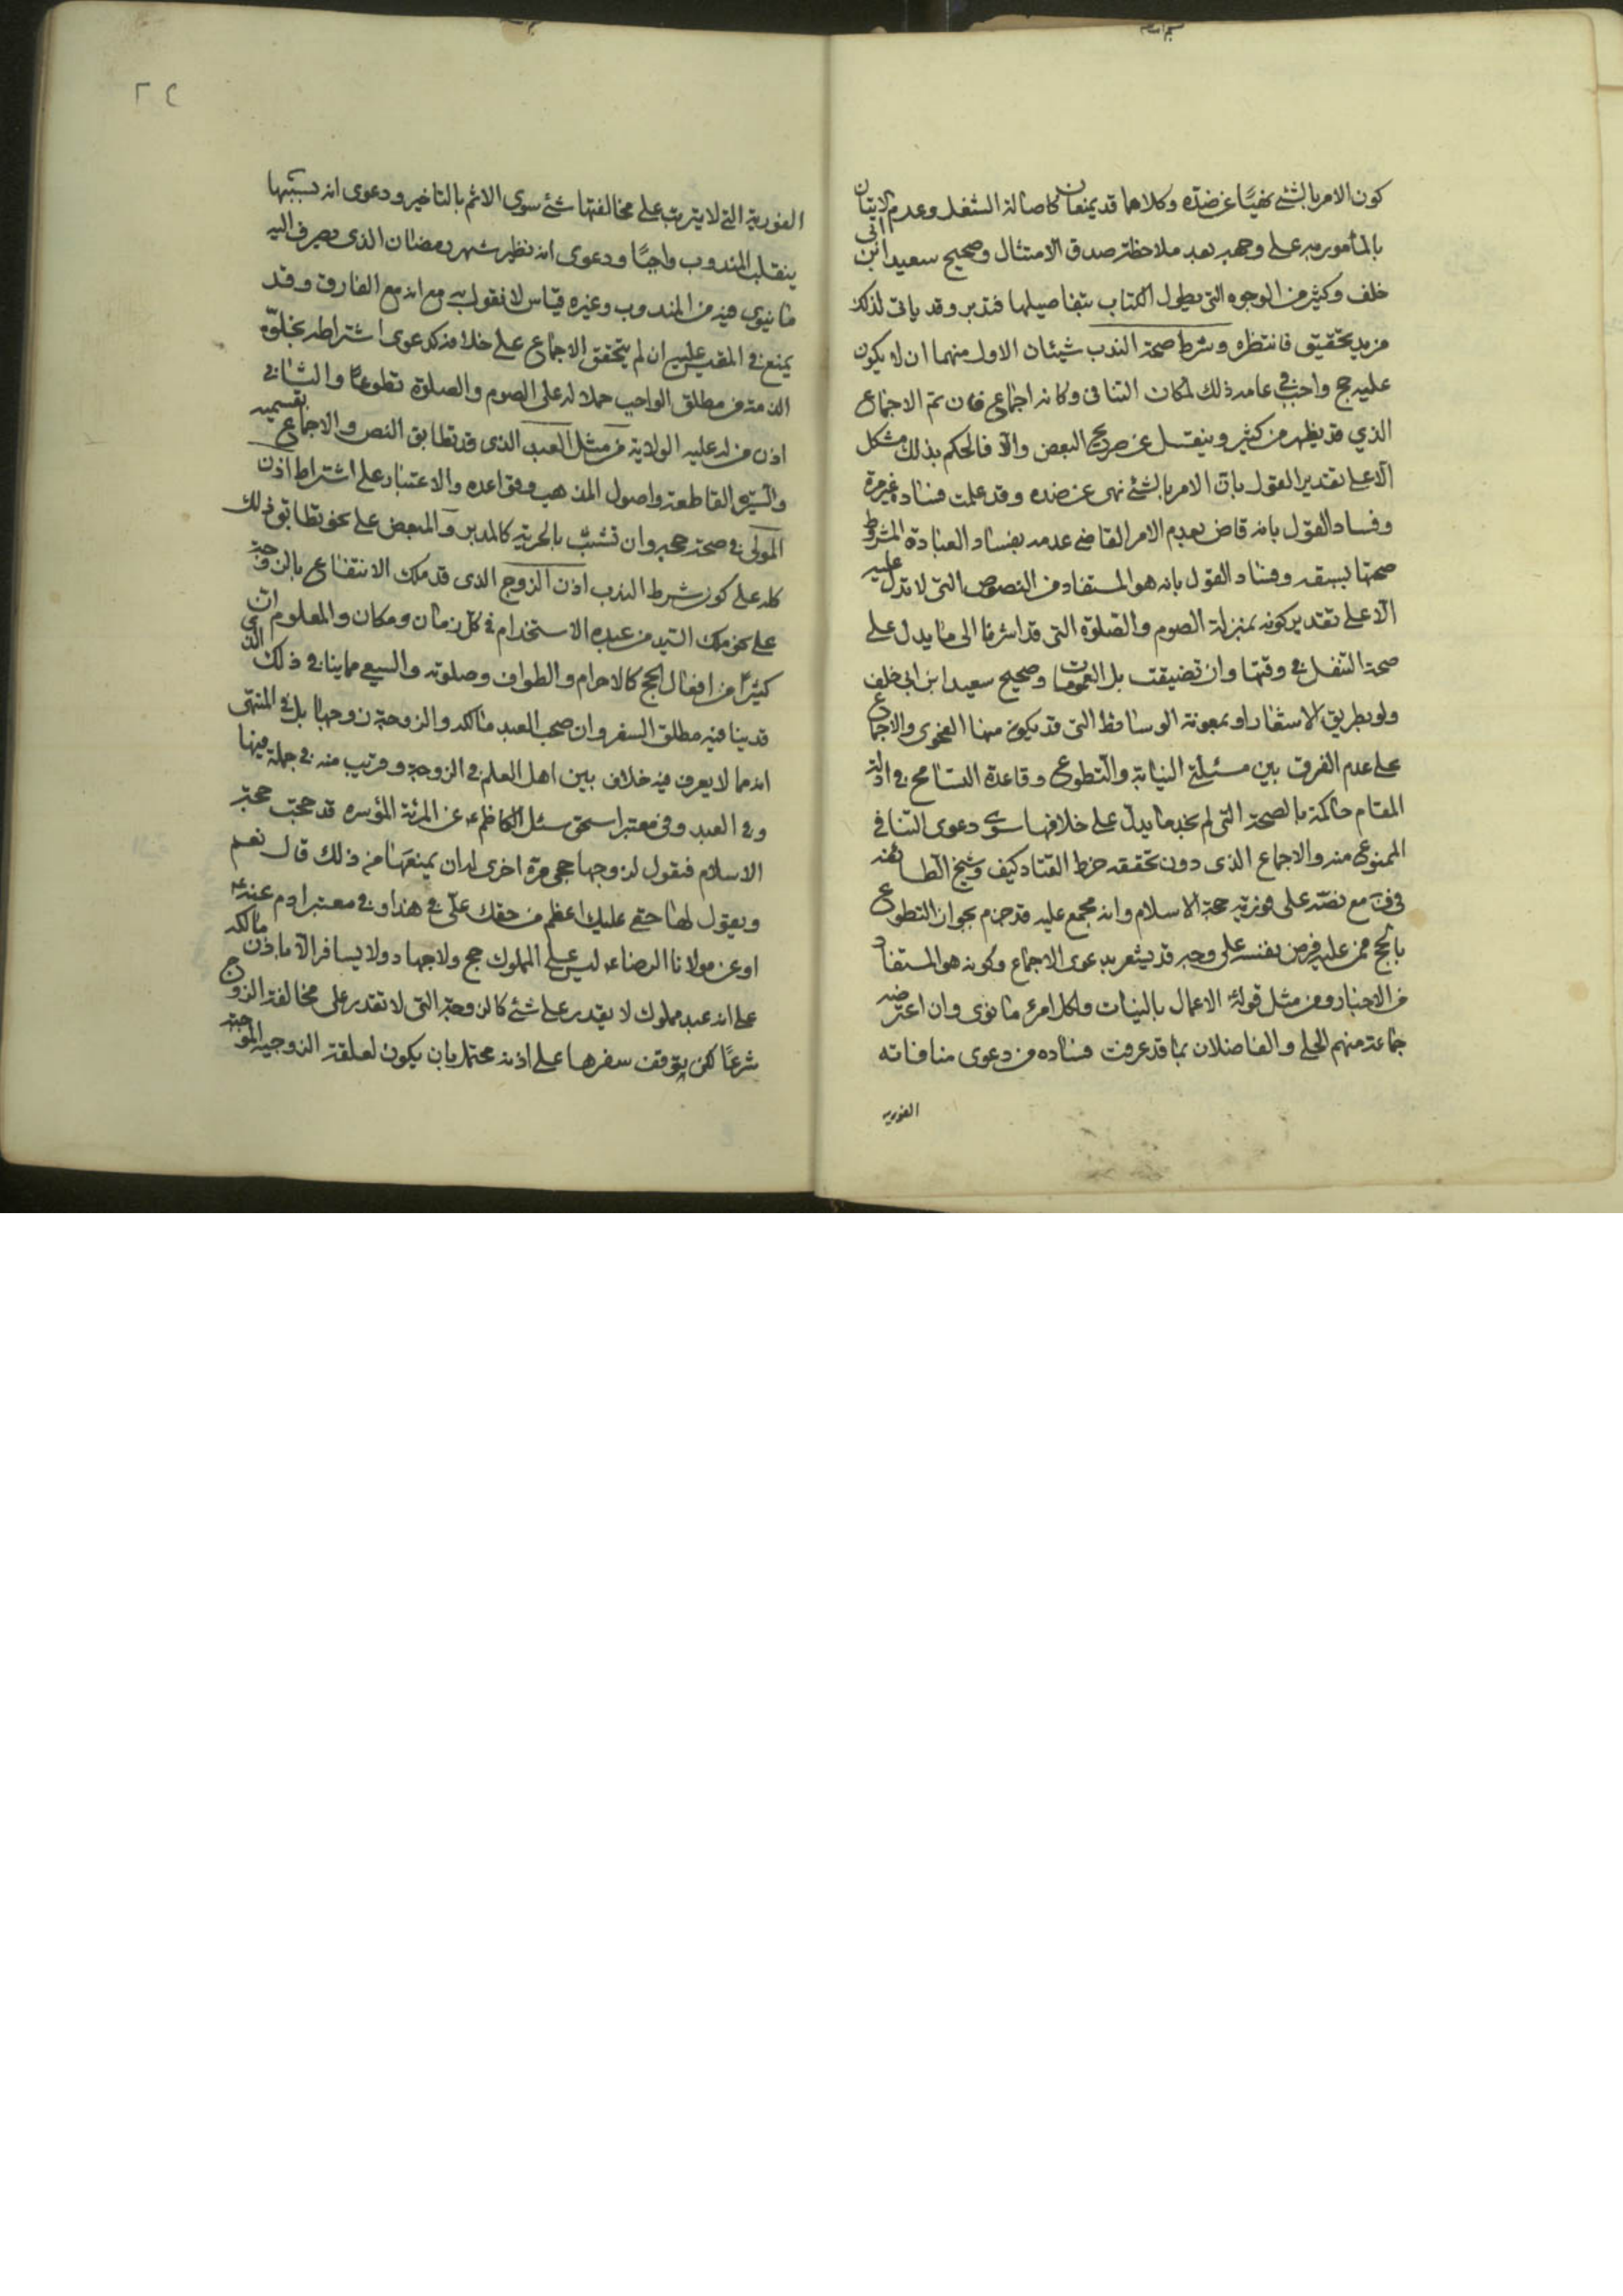 كون الامر بالشئ نهيًا عن ضده وكلاهما قد يمنعان كاصالة الشغل وعدم الاتيان
بالمأمور به على وجهه بعد ملاحظة صدق الامتثال وصحيح سعيد ابن ابى
خلف وكثير من الوجوه التى يطول الكتاب بتفاصيلها فتدبر وقد ياتى لذلك
مزيد تحقيق فانتظره وشرط صحة الندب شيئان الاول منهما ان لا يكون
عليه حج واجب فى عامه ذلك لمكان التنافى وكانه اجماع فان تم الاجماع
الذي قد يظهر من كثير وينقل عن صريح البعض والا فالحكم بذلك مشكل
الا على تقدير القول بان الامر بالشئ نهى عن ضده وقد علمت فساده غير مرة
وفساد القول بانه قاض بعدم الامر القاضى عدمه بفساد العبادة المشروط
صحتها بسبقه وفساد القول بانه هو المستفاد من النصوص التى لا تدل عليه
الا على تقدير كونه بمنزلة الصوم والصلوة التى قد اشرنا الى ما يدل على
صحة التنفل فى وقتها وان تضيقت بل العمومات وصحيح سعيد ابن ابى خلف
ولو بطريق الاشعار او بمعونة الوسائط التى قد يكون منها الفحوى والاجماع
على عدم الفرق بين مسئلتى النيابة والتطوع وقاعدة التسامح فى ادلة
المقام حاكمة بالصحة التى لم نجد ما يدل على خلافها سوى دعوى التنافى
الممنوعى منه والاجماع الذى دون تحققه خرط القتاد كيف وشيخ الطائفه
فى مع نصه على فورية حجة الاسلام وانه مجمع عليه قد جزم بجواز التطوع
بالحج ممن عليه فرض نفسه على وجه قد يشعر بدعوى الاجماع وكونه هو المستفاد
من الاخبار ومن مثل قوله الاعمال بالنيات ولكل امرئ ما نوى وان اعترضه
جماعة منهم الحلى والفاضلان بما قد عرفت فساده من دعوى منافاته
الفوريه
الفورية التى لا يترتب على مخالفتها شئ سوى الاثم بالتاخير ودعوى انه بسببها
ينقلب المندوب واجبًا ودعوى انه نظير شهر رمضان الذى يصرف اليه
ما نيوى فيه من المندوب وغيره قياس لا نقول به مع انه مع الفارق وقد
يمنع فى المقيس عليه ان لم يتحقق الاجماع على خلافه كدعوى اشتراطه بخلو
الذمة من مطلق الواجب حملا له على الصوم والصلوة تطوعًا والثانى
اذن من له عليه الولاية من مثل العبد الذى قد تطابق النص والاجماع بقسميه
والسيرة القاطعة واصول المذهب وقواعده والاعتبار على اشتراط اذن
المولى فى صحة حجه وان تشبث بالحرية كالمدبر والمبعض على نحو تطابق ذلك
كله على كون شرط الندب اذن الزوج الذى قد ملك الانتفاع بالزوجة
على نحو ملك السيد من عبده الاستخدام فى كل زمان ومكان والمعلوم ان
كثيرًا من افعال الحج كالاحرام والطواف وصلوته والسعى مما ينافى ذلك
قد ينافيه مطلق السفر وان صحب العبد مالكه والزوجة زوجها بل فى المنتهى
انه مما لا يعرف فيه خلاف بين اهل العلم فى الزوجة وقريب منه فى جملة فيها
وفى العبد وفى معتبر اسحق سئل الكاظم عن المرئة المؤسره قد حجت حجة
الاسلام فتقول لزوجها حجى مرة اخرى اله ان يمنعها من ذلك قال نعم
ويقول لها حقى عليك اعظم من حقك على فى هذا وفى معتبر ادم عنه
او عن مولانا الرضا ليس على المملوك حج ولا جهاد ولا يسافر الا باذن مالكه
على انه عبد مملوك لا يقدر على شئ كالزوجة التى لا تقدر على مخالفة الزوج
شرعًا لكن يتوقف سفرها على اذنه محتمل بان يكون لعلقة الزوجيه